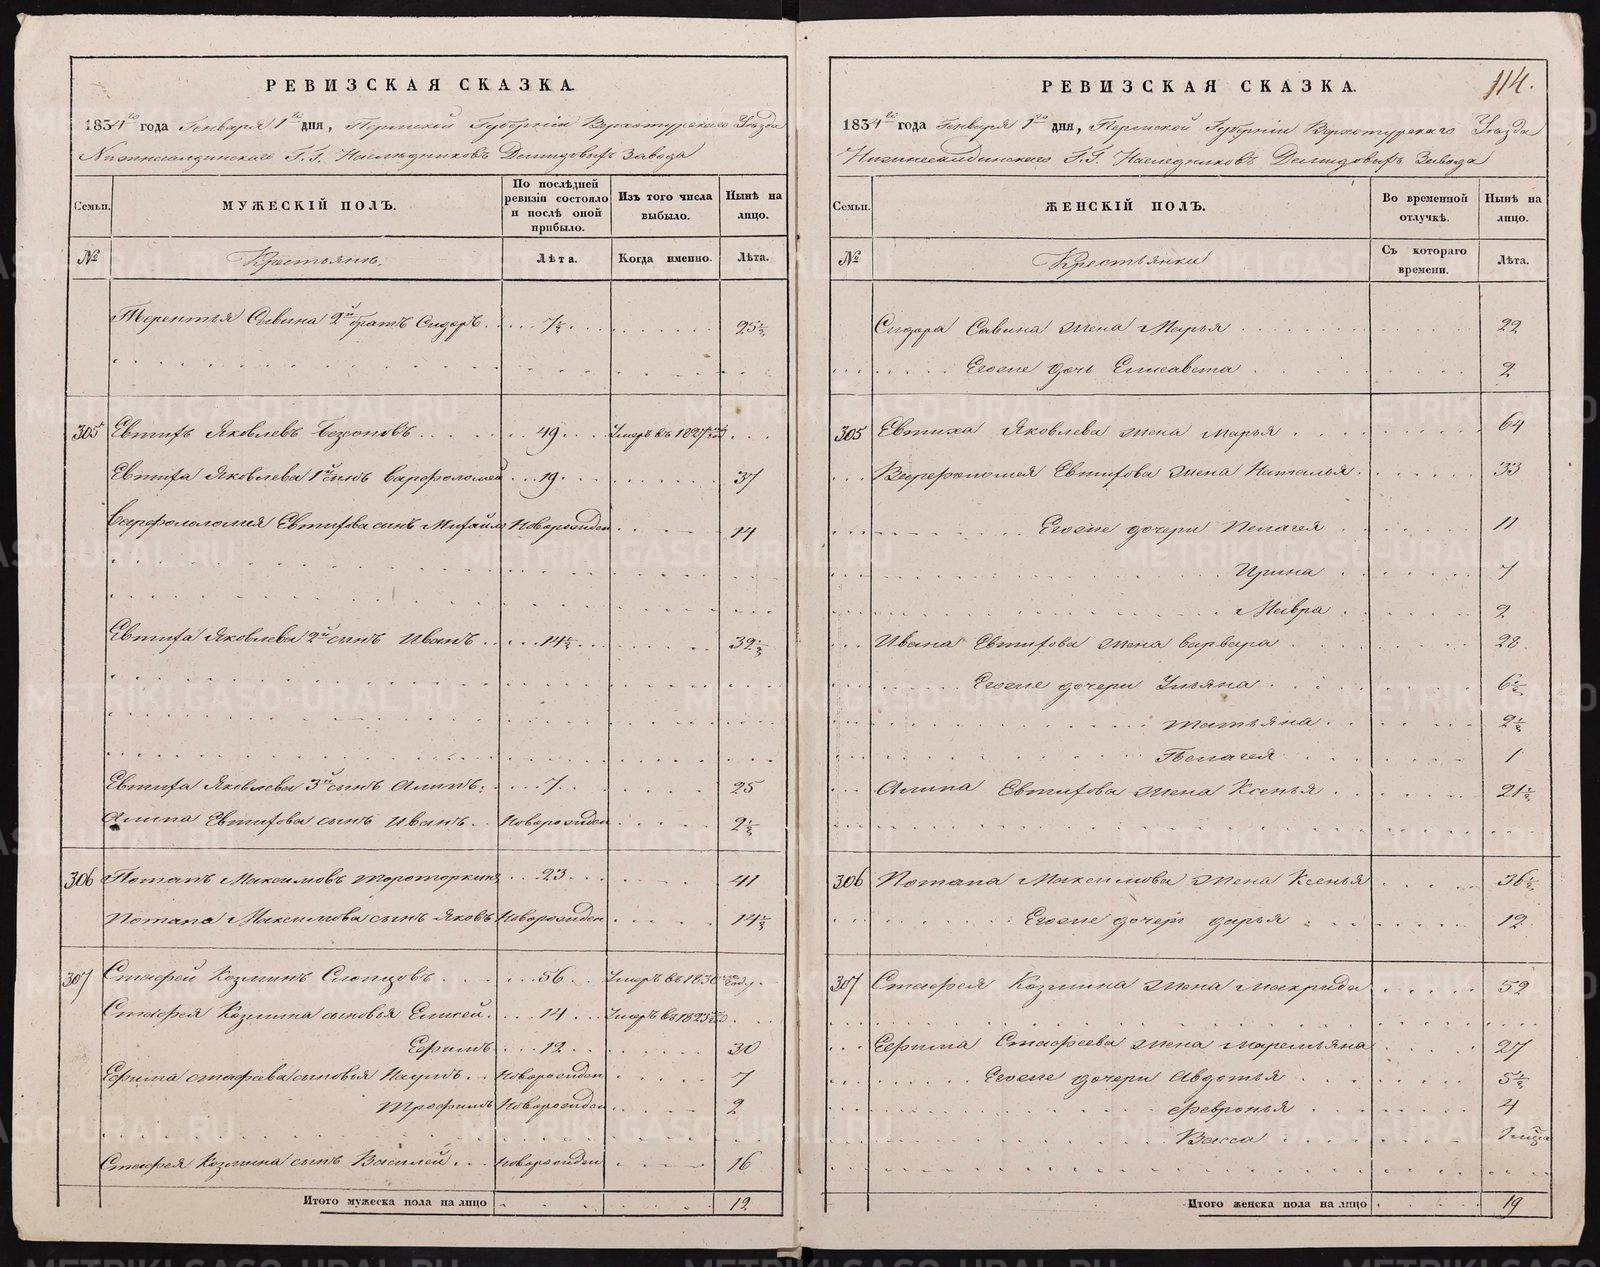 РЕВИЗСКАЯ СКАЗКА.
1834го года Генваря 1го дня, Пермской Губернiи Верхотурскаго Уѣзда
Нижнесалдинскаго Г.Г. Наслѣдниковъ Демидовыхъ Завода
Семьи.
МУЖЕСКIЙ ПОЛЪ.
По послѣдней ревизiи состояло и послѣ оной прибыло.
Изъ того числа выбыло.
Нынѣ на лицо.
№
Крестьянъ.
Лѣта.
Когда именно.
Лѣта.
Терентья Савина 2й братъ Сидоръ 7½ 23½
305 Евтихъ Яковлевъ 49 Умеръ въ 1827 году
Евтиха Яковлева 1й сынъ Варфоломей 19 37
Варфоломея Евтихова сынъ Михайло Новорожден 14
Евтиха Яковлева 2й сынъ Иванъ 14½ 32½
Евтиха Яковлева 3й сынъ Алипъ 7 25
Алипа Евтихова сынъ Иванъ Новорожден 2½
306 Потапъ Максимовъ 23 41
Потапа Максимова сынъ Яковъ Новорожден 14½
307 Стафей Козминъ Слепцовъ 56 Умеръ въ 1830 году
Стафея Козмина сыновья Елисей 14 Умеръ въ 1825 году
Ефимъ 12 30
Ефима Стафеева сыновья Наумъ Новорожден 7
Трофимъ Новорожден 2
Стафея Козмина сынъ Василей Новорожден 16
Итого мужеска пола на лицо 12
114.
РЕВИЗСКАЯ СКАЗКА.
1834го года Генваря 1го дня, Пермской Губернiи Верхотурскаго Уѣзда
Нижнесалдинскаго Г.Г. Наследниковъ Демидовыхъ Завода
Семьи.
ЖЕНСКIЙ ПОЛЪ.
Во временной отлучкѣ.
Нынѣ на лицо.
№
Крестьянки
Съ котораго времени.
Лѣта.
Сидора Савина жена Марья 22
Егоже дочь Елисавета 2
305 Евтиха Яковлева жена Марья 64
Варфоломея Евтихова жена Наталья 33
Егоже дочери Пелагея 11
Ирина 7
Мавра 2
Ивана Евтихова жена Варвара 28
Егоже дочери Ульяна 6½
Татьяна 2½
Пелагея 1
Алипа Евтихова жена Ксенья 21½
306 Потапа Максимова жена Ксенья 36½
Егоже дочерь Дарья 12
307 Стафея Козмина жена Макрида 52
Ефима Стафеева жена Маремьяна 27
Егоже дочери Авдотья 5½
Февронья 4
Васса
Итого женска пола на лицо 19
METRIKI.GASO-URAL.RU